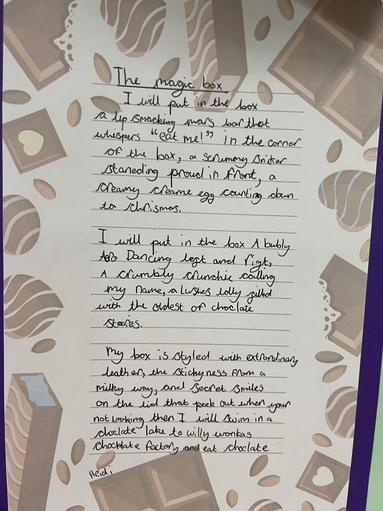 The magic box
I will put in the box
a lip smacking mars bar that
whispers "eat me!" in the corner
of the box, a scrummy snicker
standing proud in front, a
creamy creme egg counting down
to chrismas.
I will put in the box A bubly
Aero Dancing left and right,
A crumbaly crunchie calling
my name, a lushes lolly filled
with the oldest of choclate
stories.
My box is styled with extrordinary
leather, the stickyness from a
milky way, and secret smiles
on the lid that peek out when your
not looking then I will swim in a
choclate lake to willy wonkas
chocklate factory and eat choclate
Heidi